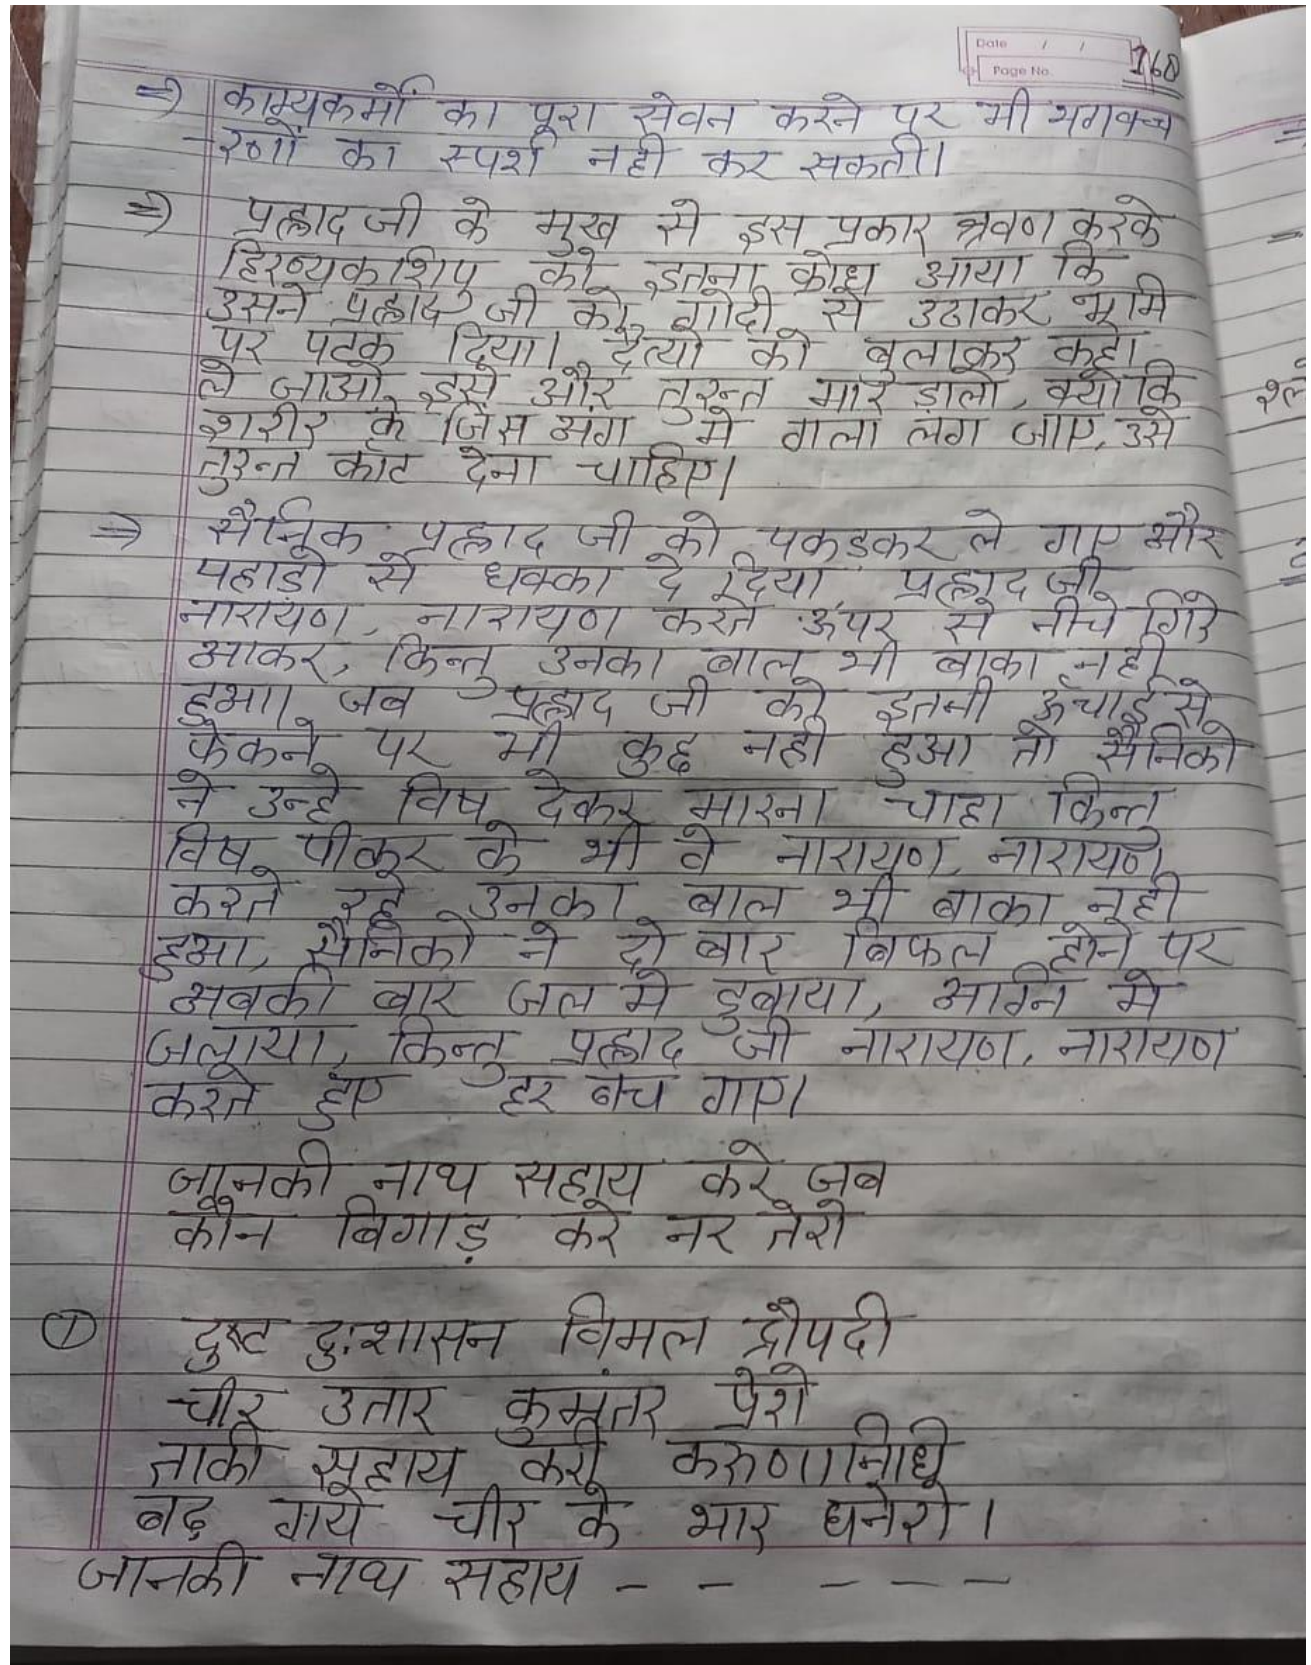 Date / /
Page No. 168
⇒ काम्यकर्मों का पूरा सेवन करने पर भी भगवच्च
-रणों का स्पर्श नही कर सकती।
⇒ प्रह्लाद जी के मुख से इस प्रकार श्रवण करके
हिरण्यकशिपु को इतना क्रोध आया कि
उसने प्रह्लाद जी को गोदी से उठाकर भूमि
पर पटक दिया। दैत्यो को बुलाकर कहा
ले जाओ इसे और तुरन्त मार डालो, क्यो कि
शरीर के जिस अंग मे गला लग जाए, उसे
तुरन्त काट देना चाहिए।
⇒ सैनिक प्रह्लाद जी को पकड़कर ले गए और
पहाडो से धक्का दे दिया, प्रह्लाद जी
नारायण, नारायण करते ऊपर से नीचे गिरे
आकर, किन्तु उनका बाल भी बाका नही
हुआ। जब प्रह्लाद जी को इतनी ऊँचाई से
फेकने पर भी कुछ नही हुआ तो सैनिको
ने उन्हे विष देकर मारना चाहा किन्तु
विष पीकर के भी वे नारायण, नारायण
करते रहे उनका बाल भी बाका नही
हुआ, सैनिको ने दो बार बिफल होने पर
अबकी बार जल मे डुबाया, अग्नि मे
जलाया, किन्तु प्रह्लाद जी नारायण, नारायण
करते हुए हर बच गए।
जानकी नाथ सहाय करे जब
कौन बिगाड़ करे नर तेरो
① दुष्ट दुःशासन विमल द्रौपदी
चीर उतार कुमंतर प्रेरो
ताकी सहाय करी करुणानिधि
बढ गये चीर के भार घनेरो।
जानकी नाथ सहाय - - - - -